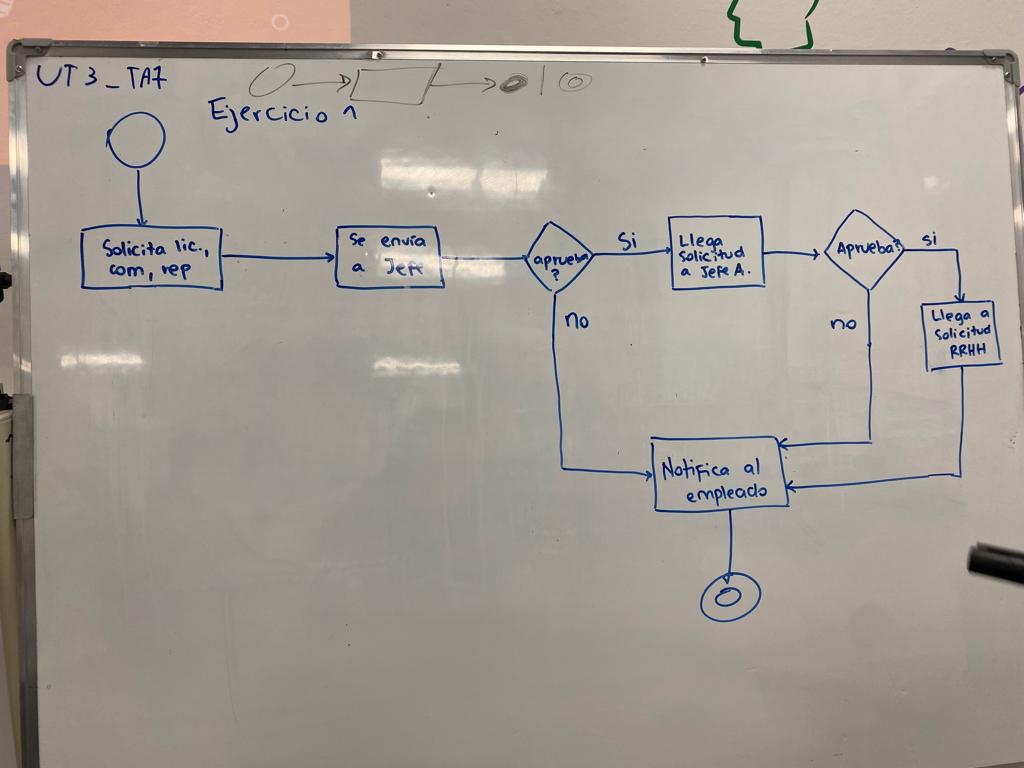 UT3_TA7
Ejercicio 1
Solicita lic.,
com, rep
Se envía
a Jefe
aprueba
?
Si
no
Llega
Solicitud
a Jefe A.
Aprueba?
si
no
Llega a
Solicitud
RRHH
Notifica al
empleado